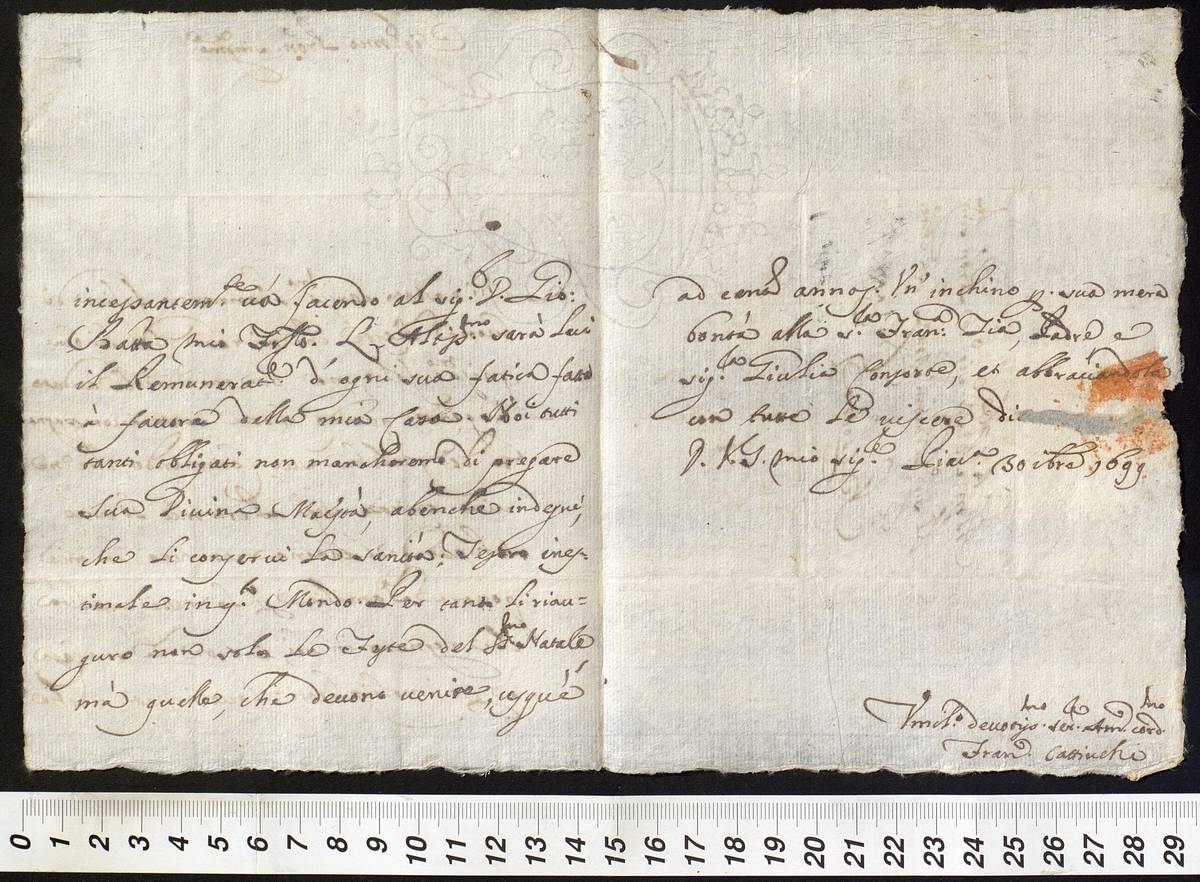 incessantem.te uà facendo al sig.r D. Gio:
Batta mio Frello. L'Altiss.mo sarà Lui
il Remunerat.e d'ogni sua fatica fatta
à fauore della mia Casa. Noi tutti
tanti obligati non mancheremo di pregare
Sua Diuina Maestà, abenche indegni,
che Li conserui La sanità, Tesoro ines-
timabile in q.to Mondo. Per tanto Li riau-
guro non solo Le Feste del S.mo Natale
mà quelle, che deuono uenire, usque
ad centũ annos. Un' inchino p. sua mera
bontà alla S.ra Fran.ca Zia, Padre e
sig.ra Giulia Consorte, et abbraciandola
con tutte Le uiscere di
V. S. mio sig.re 30 xbre 1699
Vmil.o deuotiss.mo ser.e Am.o cord.mo
Fran.co Cattiuchi
0 1 2 3 4 5 6 7 8 9 10 11 12 13 14 15 16 17 18 19 20 21 22 23 24 25 26 27 28 29